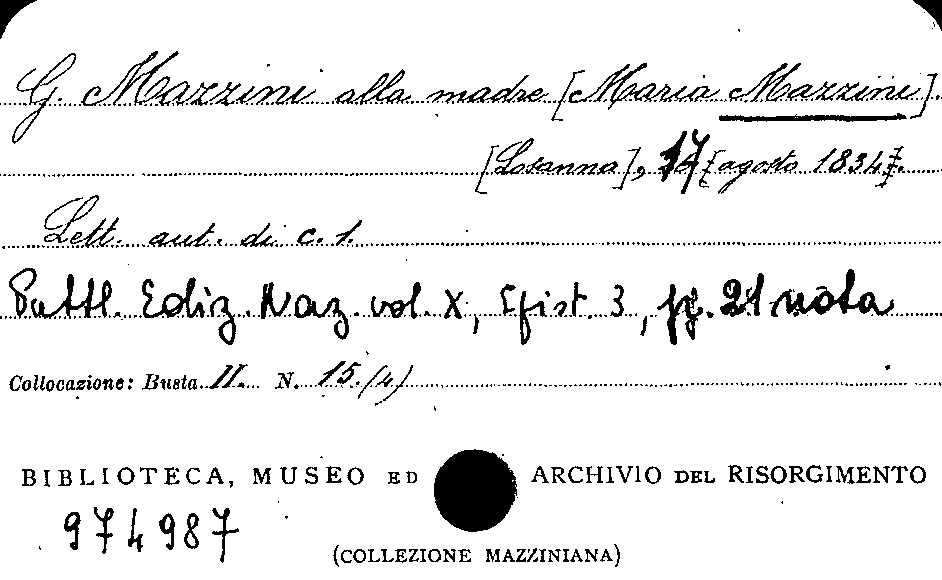 G. Mazzini alla madre [Maria Mazzini].
[Losanna], 17 [agosto 1834].
Lett. aut. di c. 1.
Pubbl. Ediz. Naz. vol. X, Epist. 3, pg. 21 nota
Collocazione: Busta II. N. 15.(4)
BIBLIOTECA, MUSEO ED ARCHIVIO DEL RISORGIMENTO
974987
(COLLEZIONE MAZZINIANA)